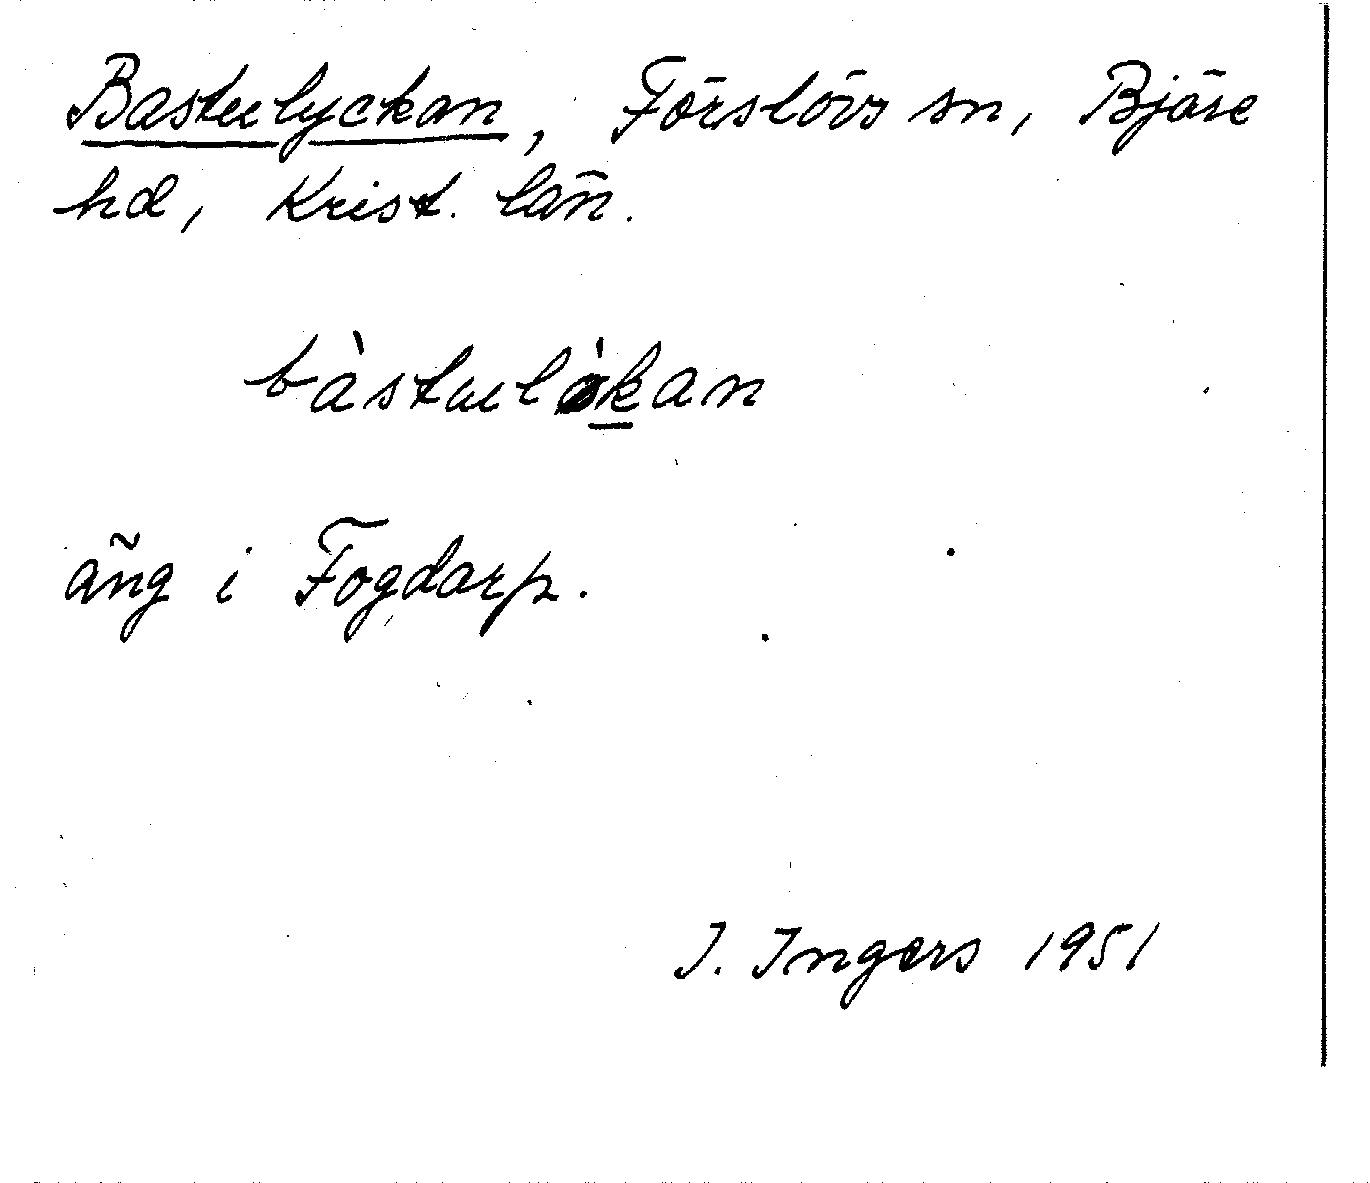 Bastulyckan, Förslövs sn, Bjäre
hd, Krist. län.
äng i Fogdarp.
I. Ingers 1951